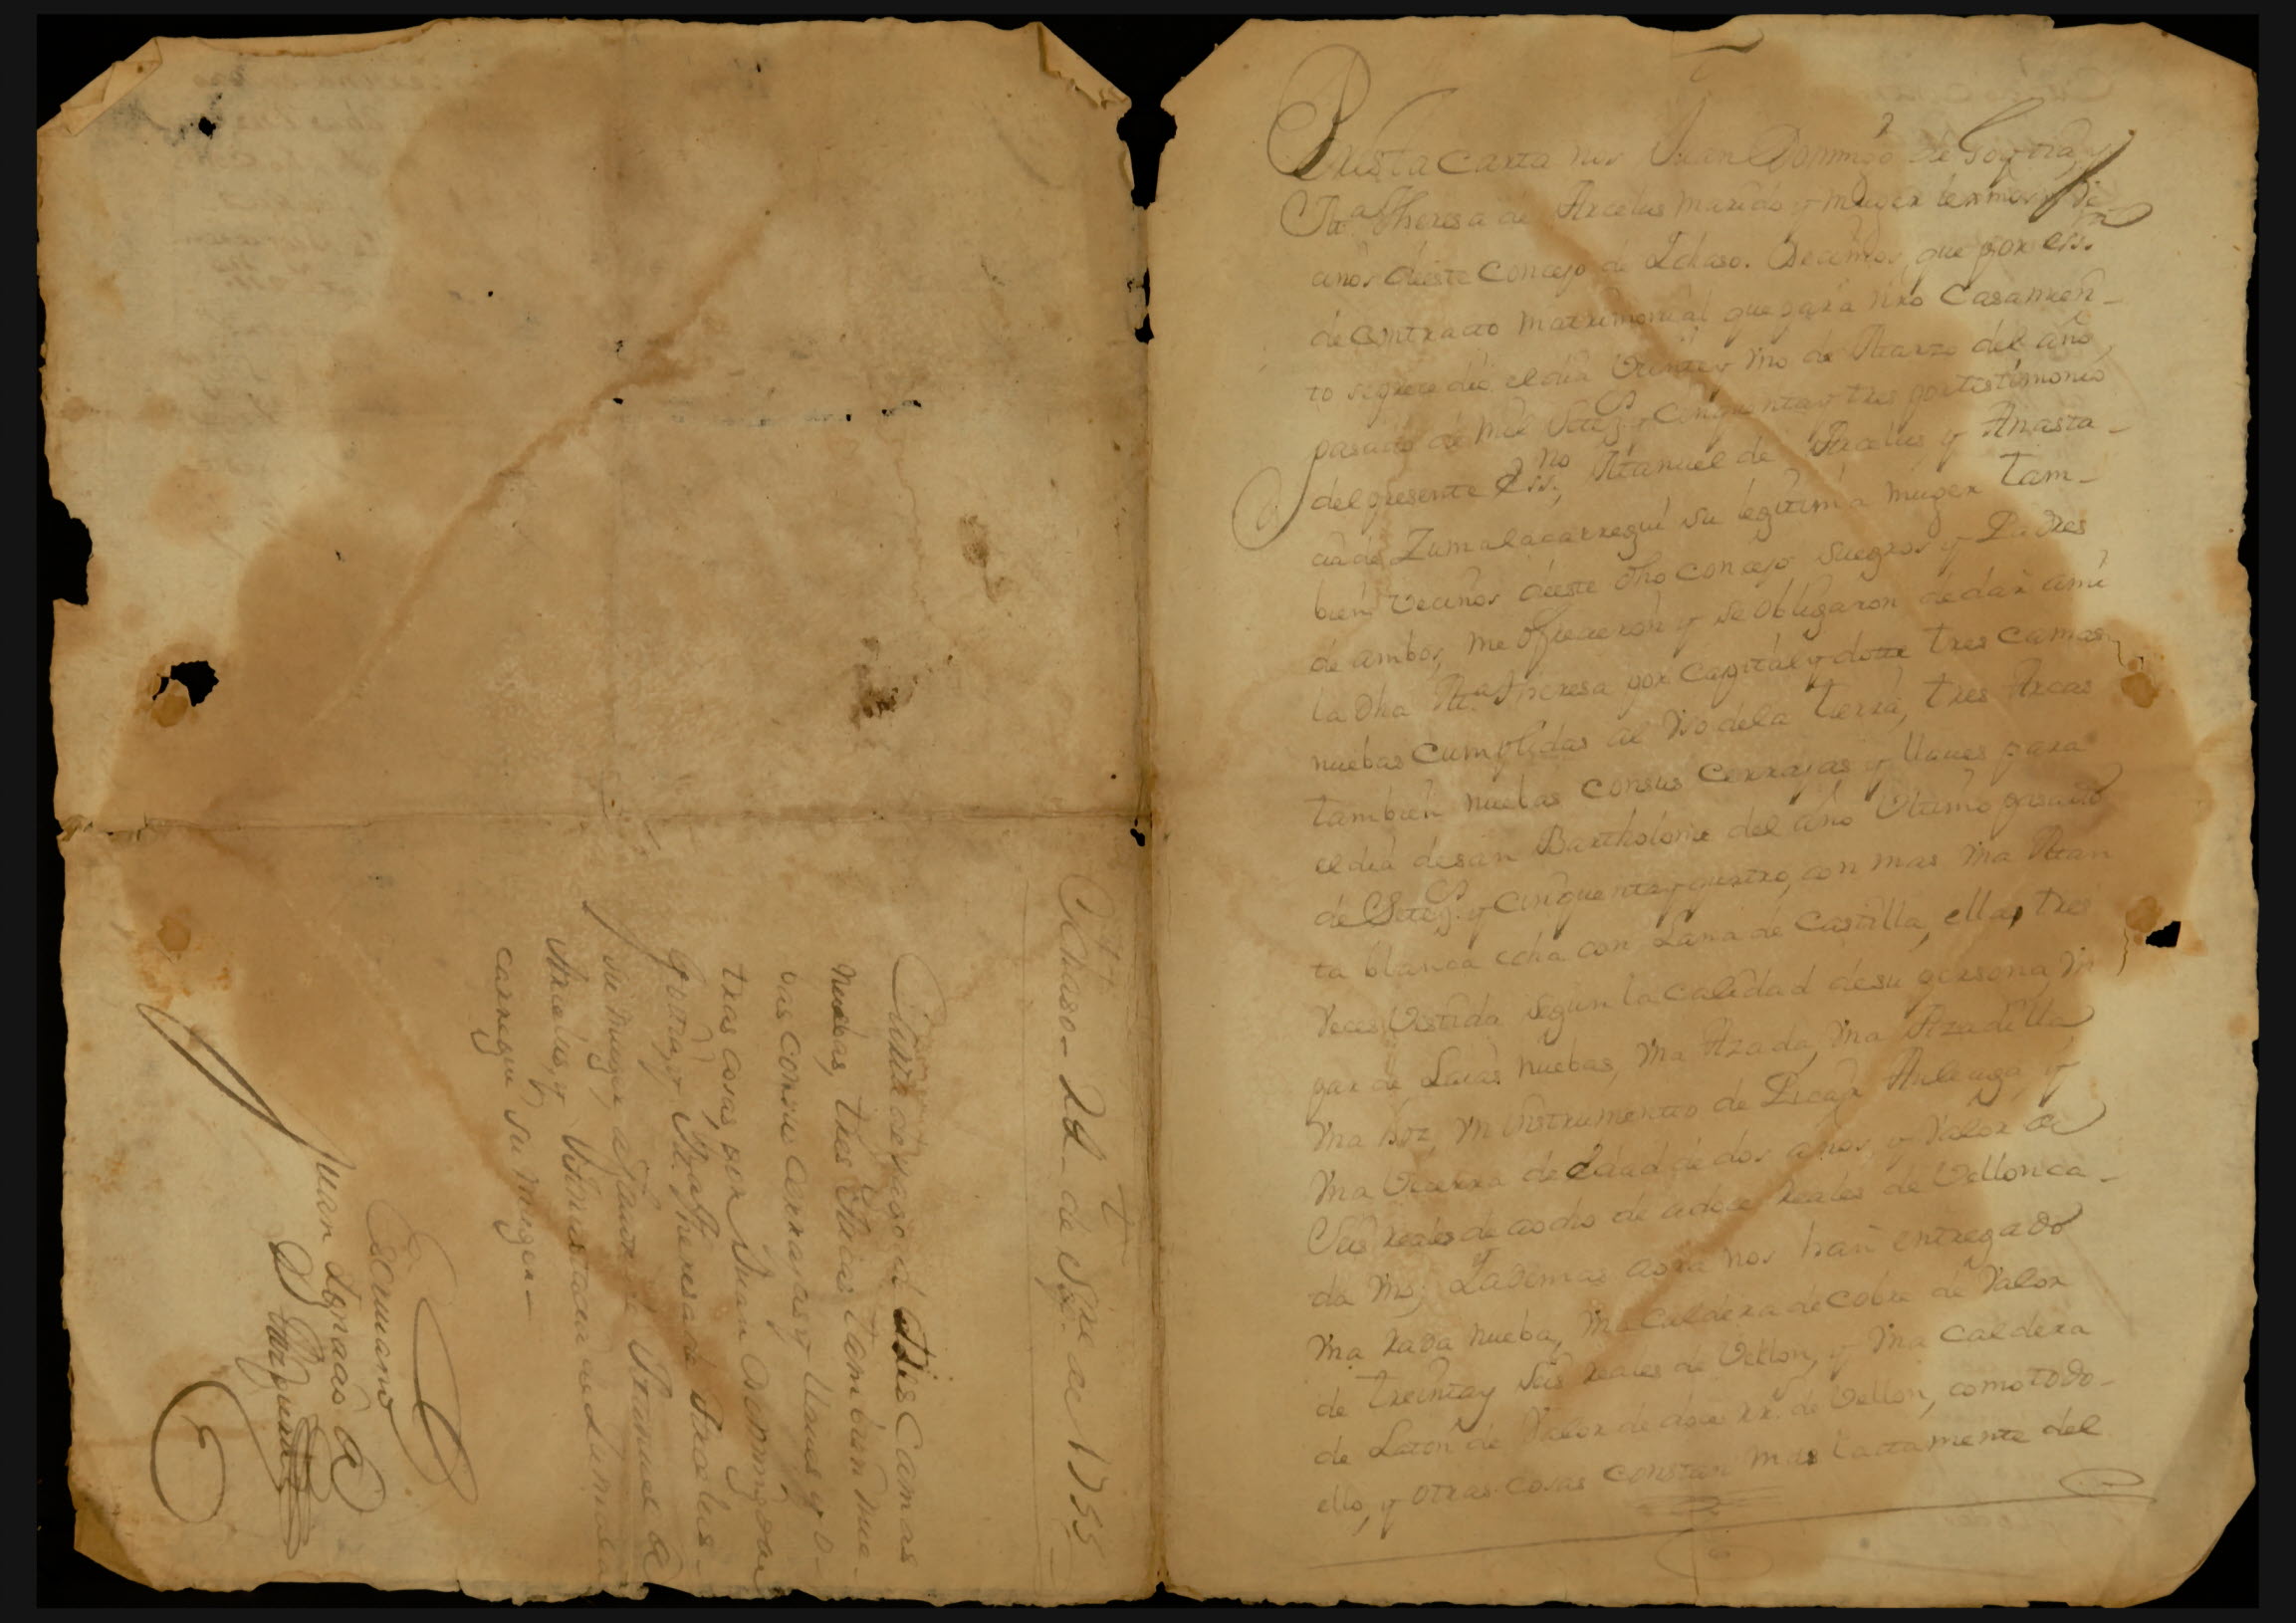 Ichaso - 28 - de Sre de 1755
Carta de pago de tres Camas
nuebas, tres Arcas tambien nue-
bas con sus cerrajas y llaves y o-
tras cosas por Juan Domingo de
Goytia, y Ma. Theresa de Arcelus
su muger, a favor de Manuel de
Arcelus, y Anastacia de Zumala
carregui su muger -
Escrivano
Juan Ignacio de
En esta carta nos Juan Domingo de Goytia, y
Ma. Theresa de Arcelus marido y muger lexmos, ve
cinos deeste Concejo de Ichaso. Decimos, que por essra
de contracto matrimonial que para nro Casamien-
to se precedio el dia veinte y uno de Marzo del año
pasado de mil Setez. y Cinquenta y tres por testimonio
del presente Essno, Manuel de Arcelus y Anasta-
cia de Zumalacarregui su legitima muger tam-
bien Vecinos deeste dho concejo suegros y Padres
de ambos, me ofrecieron y se obligaron de dar a mi
la dha Ma. Theresa por Capital y dotte tres camas
nuebas Cumplidas al uso dela tierra, tres Arcas
tambien nuebas consus Cerrajas y llaues para
el dia de san Bartholome del año Ultimo pasado
de Setez. y Cinquenta y quatro, con mas una Man
ta blanca echa con Lana de Castilla, ella, tres
veces Vestida segun la calidad de su persona, un
par de Laias nuebas, una Azada, una Azadilla
una hoz, un instrumento de Picar Aulaga, y
una Vecerra de edad de dos años, y Valor de
Seis reales de a ocho de a doce reales de Vellon ca-
da uno; Y ademas aora nos han entregado
una rada nueba, una caldera de cobre de Valor
de treinta y seis reales de Vellon, y una caldera
de Laton de Valor de doce rs. de Vellon, como todo
ello, y otras cosas constan mas lactamente del